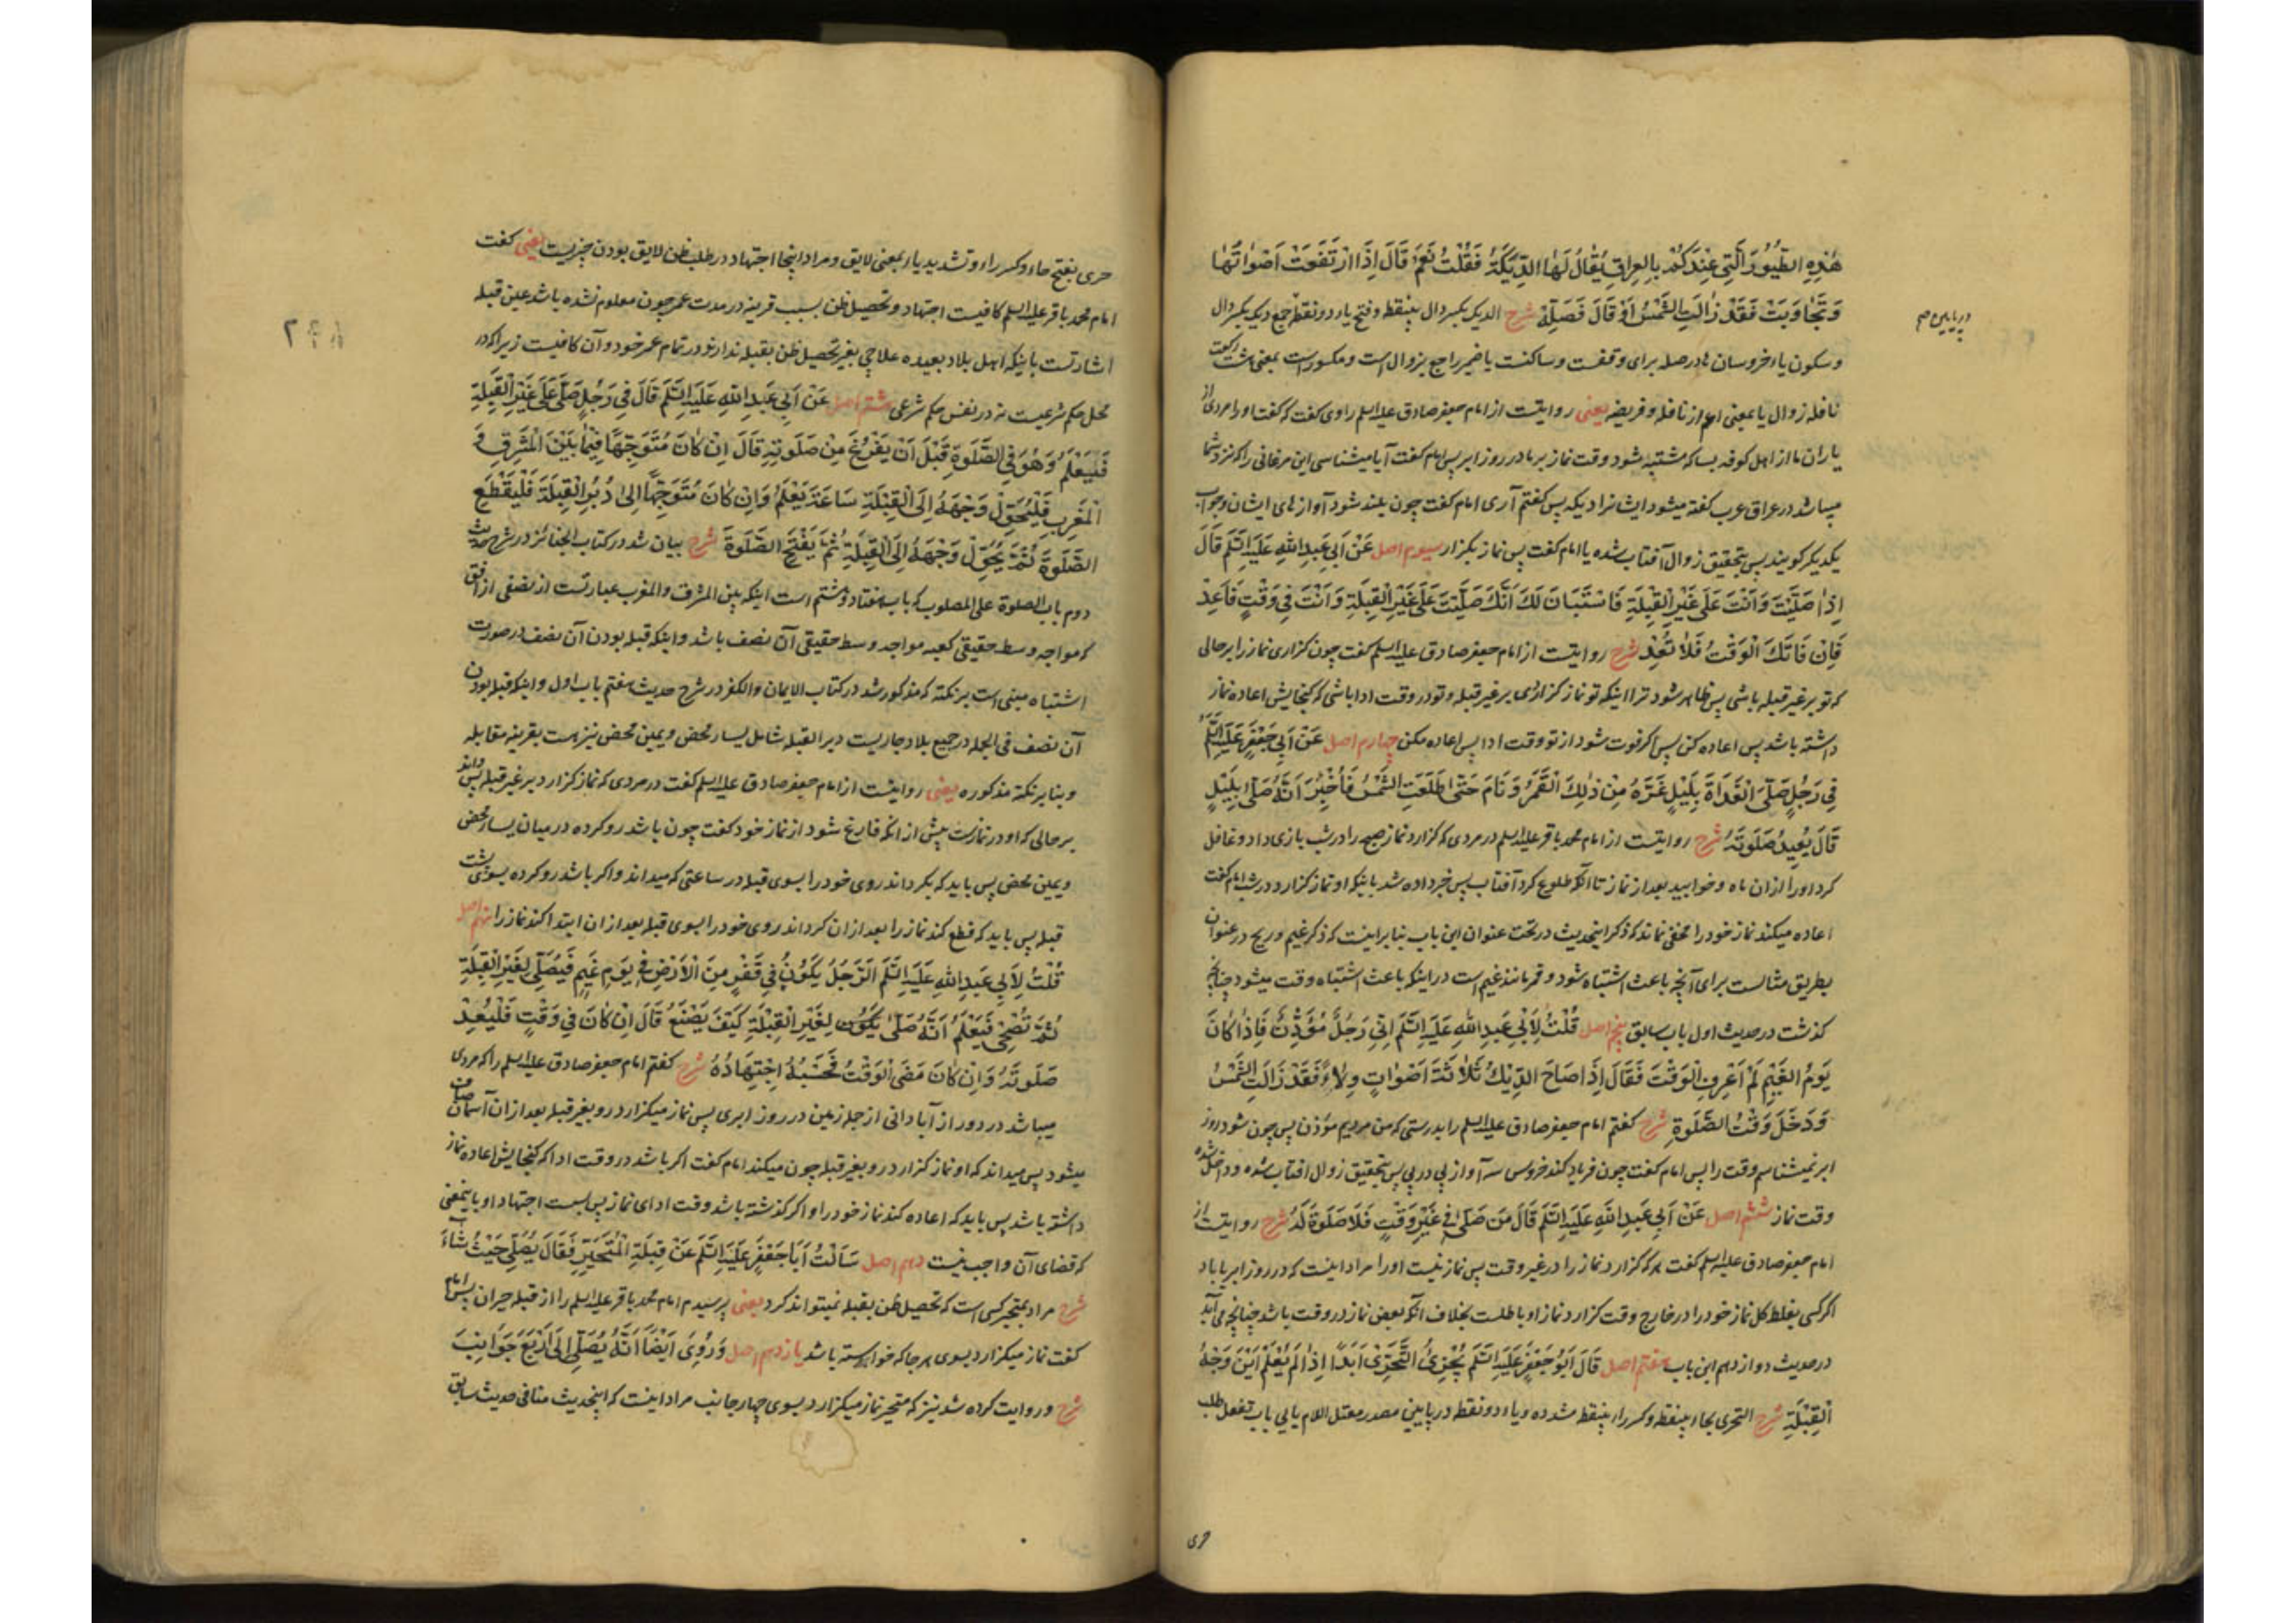 هٰذِهِ الطُّیُورَ الَّتِی عِنْدَکُمْ بِالعِراقِ یُقَالُ لَهَا الدِّیَکَةُ فَقُلْتُ نَعَمْ قَالَ اِذَا ارْتَفَعَتْ اَصْوَاتُهَا
وَتَجَاوَبَتْ فَقَدْ زَالَتِ الشَّمْسُ اَوْ قَالَ فَصَلِّهْ شرح الدیک بکسر دال بینقطه و فتح یاء دو نقطه جمع دیک بکسر دال
در پایین صح
و سکون یاء خروسان ها در صله برای وقفست و ساکنست یا ضمیر راجع بزوال است و مکسور است بمعنی هشت رکعت
نافله زوال یا بمعنی اعم از نافله و فریضه یعنی روایتست از امام جعفر صادق علیه السلم راوی گفت که گفت او را مردی از
یاران ما از اهل کوفه بسا که مشتبه شود وقت نماز بر ما در روز ابر پس امام گفت آیا میشناسی این مرغانی را که نزد شما
میباشد در عراق عرب گفته میشود ایشانرا دیکه پس گفتم آری امام گفت چون بلند شود آواز های ایشان و جواب
یکدیگر گویند پس بتحقیق زوال آفتاب شده یا امام گفت پس نماز بگزار سیوم اصل عَنْ اَبِی عَبدِ اللهِ عَلَیهِ السَّلَم قَالَ
اِذَا صَلَّیْتَ وَاَنْتَ عَلَی غَیْرِ الْقِبْلَةِ فَاسْتَبَانَ لَکَ اَنَّکَ صَلَّیْتَ عَلَی غَیْرِ الْقِبْلَةِ وَاَنْتَ فِی وَقْتٍ فَاَعِدْ
فَاِنْ فَاتَکَ الْوَقْتُ فَلَا تُعِدْ شرح روایتست از امام جعفر صادق علیه السلم گفت چون گزاری نماز را بر حالی
که تو بر غیر قبله باشی پس ظاهر شود ترا اینکه تو نماز گزاردی بر غیر قبله و تو در وقت ادا باشی که گنجایش اعاده نماز
داشته باشد پس اعاده کن پس اگر فوت شود از تو وقت ادا پس اعاده مکن چهارم اصل عَنْ اَبِی جَعْفَرٍ عَلَیهِ السَّلَمُ
فِی رَجُلٍ صَلَّی الْغَدَاةَ بِلَیْلٍ غَرَّهُ مِنْ ذٰلِکَ الْقَمَرُ وَنَامَ حَتّٰی طَلَعَتِ الشَّمْسُ فَاُخْبِرَ اَنَّهُ صَلّٰی بِلَیْلٍ
قَالَ یُعِیدُ صَلَوتَهُ شرح روایتست از امام محمد باقر علیه السلم در مردی که گزارد نماز صبح را در شب بازی داد و غافل
کرد او را از آن ماه و خوابید بعد از نماز تا آنکه طلوع کرد آفتاب پس خبر داده شد باینکه او نماز گزارد در شب امام گفت
اعاده میکند نماز خود را مخفی نماند که ذکر اینحدیث در تحت عنوان این باب بنا بر اینست که ذکر غیم و ریح در عنوان
بطریق مثالست برای آنچه باعث اشتباه شود و قمر مانند غیم است در اینکه باعث اشتباه وقت میشود چنانچه
گذشت در حدیث اول باب سابق پنجم اصل قُلْتُ لِاَبِی عَبدِ اللهِ عَلَیهِ السَّلَم اِنِّی رَجُلٌ مُؤَذِّنٌ فَاِذَا کَانَ
یَومُ الغَیْمِ لَمْ اَعْرِفِ الْوَقْتَ فَقَالَ اِذَا صَاحَ الدِّیکُ ثَلَاثَةَ اَصْوَاتٍ وِلَاءً فَقَدْ زَالَتِ الشَّمْسُ
وَدَخَلَ وَقْتُ الصَّلَوةِ شرح گفتم امام جعفر صادق علیه السلم را بدرستی که من مردیم مؤذن پس چون شود روز
ابر نمیشناسم وقت را پس امام گفت چون فریاد کند خروس سه آواز پی در پی پس بتحقیق زوال آفتاب شده و داخل شده
وقت نماز ششم اصل عَنْ اَبِی عَبدِ اللهِ عَلَیهِ السَّلَم قَالَ مَن صَلّٰی فِی غَیْرِ وَقْتٍ فَلَا صَلَوةَ لَهُ شرح روایتست از
امام جعفر صادق علیه السلم گفت هر که گزارد نماز را در غیر وقت پس نماز نیست او را مراد اینست که در روز ابر یا باد
اگر کسی بغلط کل نماز خود را در خارج وقت گزارد نماز او باطلست بخلاف آنکه بعض نماز در وقت باشد چنانچه می آید
در حدیث دوازدهم این باب هفتم اصل قَالَ اَبُو جَعْفَرٍ عَلَیهِ السَّلَم یُجْزِیُ التَّحَرِّی اَبَدًا اِذَا لَمْ یُعْلَمْ اَیْنَ وَجْهُ
الْقِبْلَةِ شرح التحری بحاء بینقطه و کسر راء بینقطه مشدده و یاء دو نقطه در پایین مصدر معتل اللام یایی باب تفعل طلب
حری
حری بفتح حاء و کسر راء و تشدید یاء بمعنی لایق و مراد اینجا اجتهاد در طلب ظن لایق بودن چیزیست یعنی گفت
امام محمد باقر علیه السلم کافیست اجتهاد و تحصیل ظن بسبب قرینه در مدت عمر چون معلوم نشده باشد عین قبله
اشارتست باینکه اهل بلاد بعیده علاجی بغیر تحصیل ظن بقبله ندارند در تمام عمر خود و آن کافیست زیرا که در
محل حکم شرعیست نه در نفس حکم شرعی هشتم اصل عَنْ اَبِی عَبدِ اللهِ عَلَیهِ السَّلَم قَالَ فِی رَجُلٍ صَلّٰی عَلَی غَیْرِ الْقِبْلَةِ
فَیَعْلَمُ وَهُوَ فِی الصَّلَوةِ قَبْلَ اَنْ یَفْرُغَ مِنْ صَلَوتِهِ قَالَ اِنْ کَانَ مُتَوَجِّهًا فِیمَا بَیْنَ الْمَشْرِقِ وَ
الْمَغْرِبِ فَلْیُحَوِّلْ وَجْهَهُ اِلَی الْقِبْلَةِ سَاعَةَ یَعْلَمُ وَاِنْ کَانَ مُتَوَجِّهًا اِلٰی دُبُرِ الْقِبْلَةِ فَلْیَقْطَعِ
الصَّلَوةَ ثُمَّ یُحَوِّلْ وَجْهَهُ اِلَی الْقِبْلَةِ ثُمَّ یَفْتَتِحِ الصَّلَوةَ شرح بیان شد در کتاب الجنائز در شرح حدیث
دوم باب الصلوة علی المصلوب که باب هفتاد و هشتم است اینکه بین المشرق و المغرب عبارتست از نصفی از افق
که مواجه وسط حقیقی کعبه مواجه وسط حقیقی آن نصف باشد و اینکه قبله بودن آن نصف در صورت
اشتباه مبنی است بر نکتهٔ که مذکور شد در کتاب الایمان و الکفر در شرح حدیث هفتم باب اول و اینکه قبله بودن
آن نصف فی الجمله در جمیع بلاد جاریست دبر القبله شامل یسار محض و یمین محض نیز هست بقرینه مقابله
و بنا بر نکتهٔ مذکوره یعنی روایتست از امام جعفر صادق علیه السلم گفت در مردی که نماز گزارد بر غیر قبله پس داند
بر حالی که او در نمازست پیش از آنکه فارغ شود از نماز خود گفت چون باشد رو کرده در میان یسار محض
و یمین محض پس باید که بگرداند روی خود را بسوی قبله در ساعتی که میداند و اگر باشد رو کرده بسوی پشت
قبله پس باید که قطع کند نماز را بعد از آن گرداند روی خود را بسوی قبله بعد از آن ابتدا کند نماز را نهم اصل
قُلْتُ لِاَبِی عَبدِ اللهِ عَلَیهِ السَّلَم الرَّجُلُ یَکُونُ فِی قَفْرٍ مِنَ الْاَرْضِ فِی یَومِ غَیْمٍ فَیُصَلِّی لِغَیْرِ الْقِبْلَةِ
ثُمَّ تُضْحِی فَیَعْلَمُ اَنَّهُ صَلّٰی لِغَیْرِ الْقِبْلَةِ کَیْفَ یَصْنَعُ قَالَ اِنْ کَانَ فِی وَقْتٍ فَلْیُعِدْ
صَلَوتَهُ وَاِنْ کَانَ مَضَی الْوَقْتُ فَحَسْبُهُ اجْتِهَادُهُ شرح گفتم امام جعفر صادق علیه السلم را که مردی
میباشد در دور از آبادانی از جمله زمین در روز ابری پس نماز میگزارد رو بغیر قبله بعد از آن آسمان صاف
میشود پس میداند که او نماز گزارد رو بغیر قبله چون میکند امام گفت اگر باشد در وقت ادا که گنجایش اعاده نماز
داشته باشد پس باید که اعاده کند نماز خود را و اگر گذشته باشد وقت ادای نماز پس بس است اجتهاد او باینمعنی
که قضای آن واجب نیست دهم اصل سَاَلْتُ اَبَا جَعْفَرٍ عَلَیهِ السَّلَم عَنْ قِبْلَةِ الْمُتَحَیِّرِ فَقَالَ یُصَلِّی حَیْثُ شَاءَ
شرح مراد بمتحیر کسی است که تحصیل ظن بقبله نمیتواند کرد یعنی پرسیدم امام محمد باقر علیه السلم را از قبله حیران پس امام
گفت نماز میگزارد بسوی هر جا که خواسته باشد یازدهم اصل وَرُوِیَ اَیْضًا اَنَّهُ یُصَلِّی اِلَی اَرْبَعِ جَوَانِبَ
شرح و روایت کرده شد نیز که متحیر نماز میگزارد بسوی چهار جانب مراد اینست که اینحدیث منافی حدیث سابق